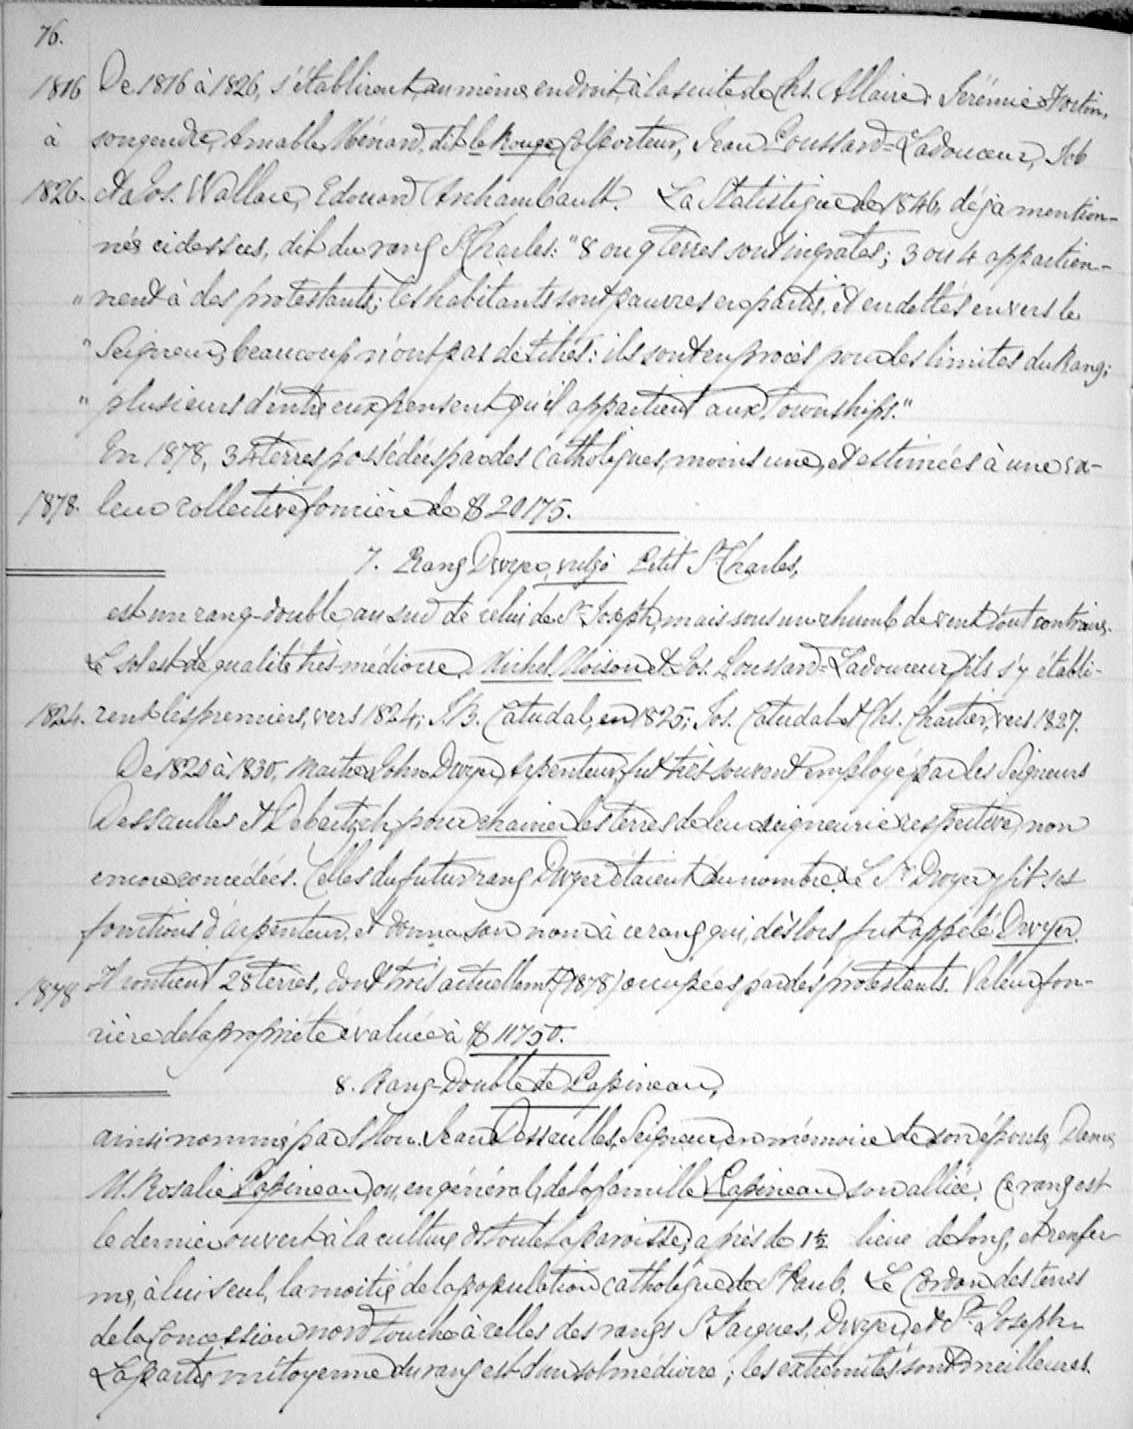 76.
1816 De 1816 à 1826, s'établirent, au même endroit, à la suite de Chs. Allaire: Jérémie Fortin,
à son gendre, Amable Ménard, dit le Rouge, Colporteur, Jean Poussard=Ladouceur, Job
1826. et Jos. Wallace, Edouard Archambault. La Statistique de 1846, déjà mention-
née ci dessus, dit du rang St Charles: "8 ou 9 terres sont ingrates; 3 ou 4 appartien-
" nent à des protestants; les habitants sont pauvres en partie, et endettés envers le
" Seigneur; beaucoup n'ont pas de titres: ils sont en procès pour les limites du Rang;
" plusieurs d'entre eux pensent qu'il appartient aux Townships."
En 1878, 34 terres possédées par des Catholiques, moins une, et estimées à une va-
1878. leur collective foncière de $ 20175.
7. Rang Dwyer, vulgò Petit St Charles,
est un rang-double au sud de celui de St Joseph, mais sous un rhumb de vent tout contraire.
Le sol est de qualité très-médiocre. Michel Moison et Jos. Poussard=Ladouceur, fils s'y établi-
1824. rent les premiers, vers 1824; J.B. Catudal, en 1825; Jos. Catudal et Chs. Chartier, vers 1827.
De 1820 à 1830, Maître John Dwyer, Arpenteur, fut très souvent employé par les Seigneurs
Dessaulles et Debartzch, pour chainer les terres de leur seigneurie respective, non
encore concédées. Celles du futur rang Dwyer étaient du nombre. Le Sr Dwyer y fit ses
fonctions d'arpenteur, et donna son nom à ce rang qui, dès lors fut appelé Dwyer.
1878 Il contient 28 terres, dont trois actuellemt (1878) occupées par des protestants. Valeur fon-
cière de la propriété évaluée à $ 11750.
8. Rang-Double de Papineau,
ainsi nommé par l'Hon. Jean Dessaulles, Seigneur, en mémoire de son épouse, Dame
M. Rosalie Papineau, ou, en général, de la famille Papineau son alliée. Ce rang est
le dernier ouvert à la culture de toute la paroisse; a près de 1½ lieue de long, et renfer-
me, à lui seul, la moitié de la population catholique de St Paul. Le Cordon des terres
de la Concession nord touche à celles des rangs St Jacques, Dwyer, et St Joseph.
La partie mitoyenne du rang est d'un sol médiocre; les extrémités sont meilleures.